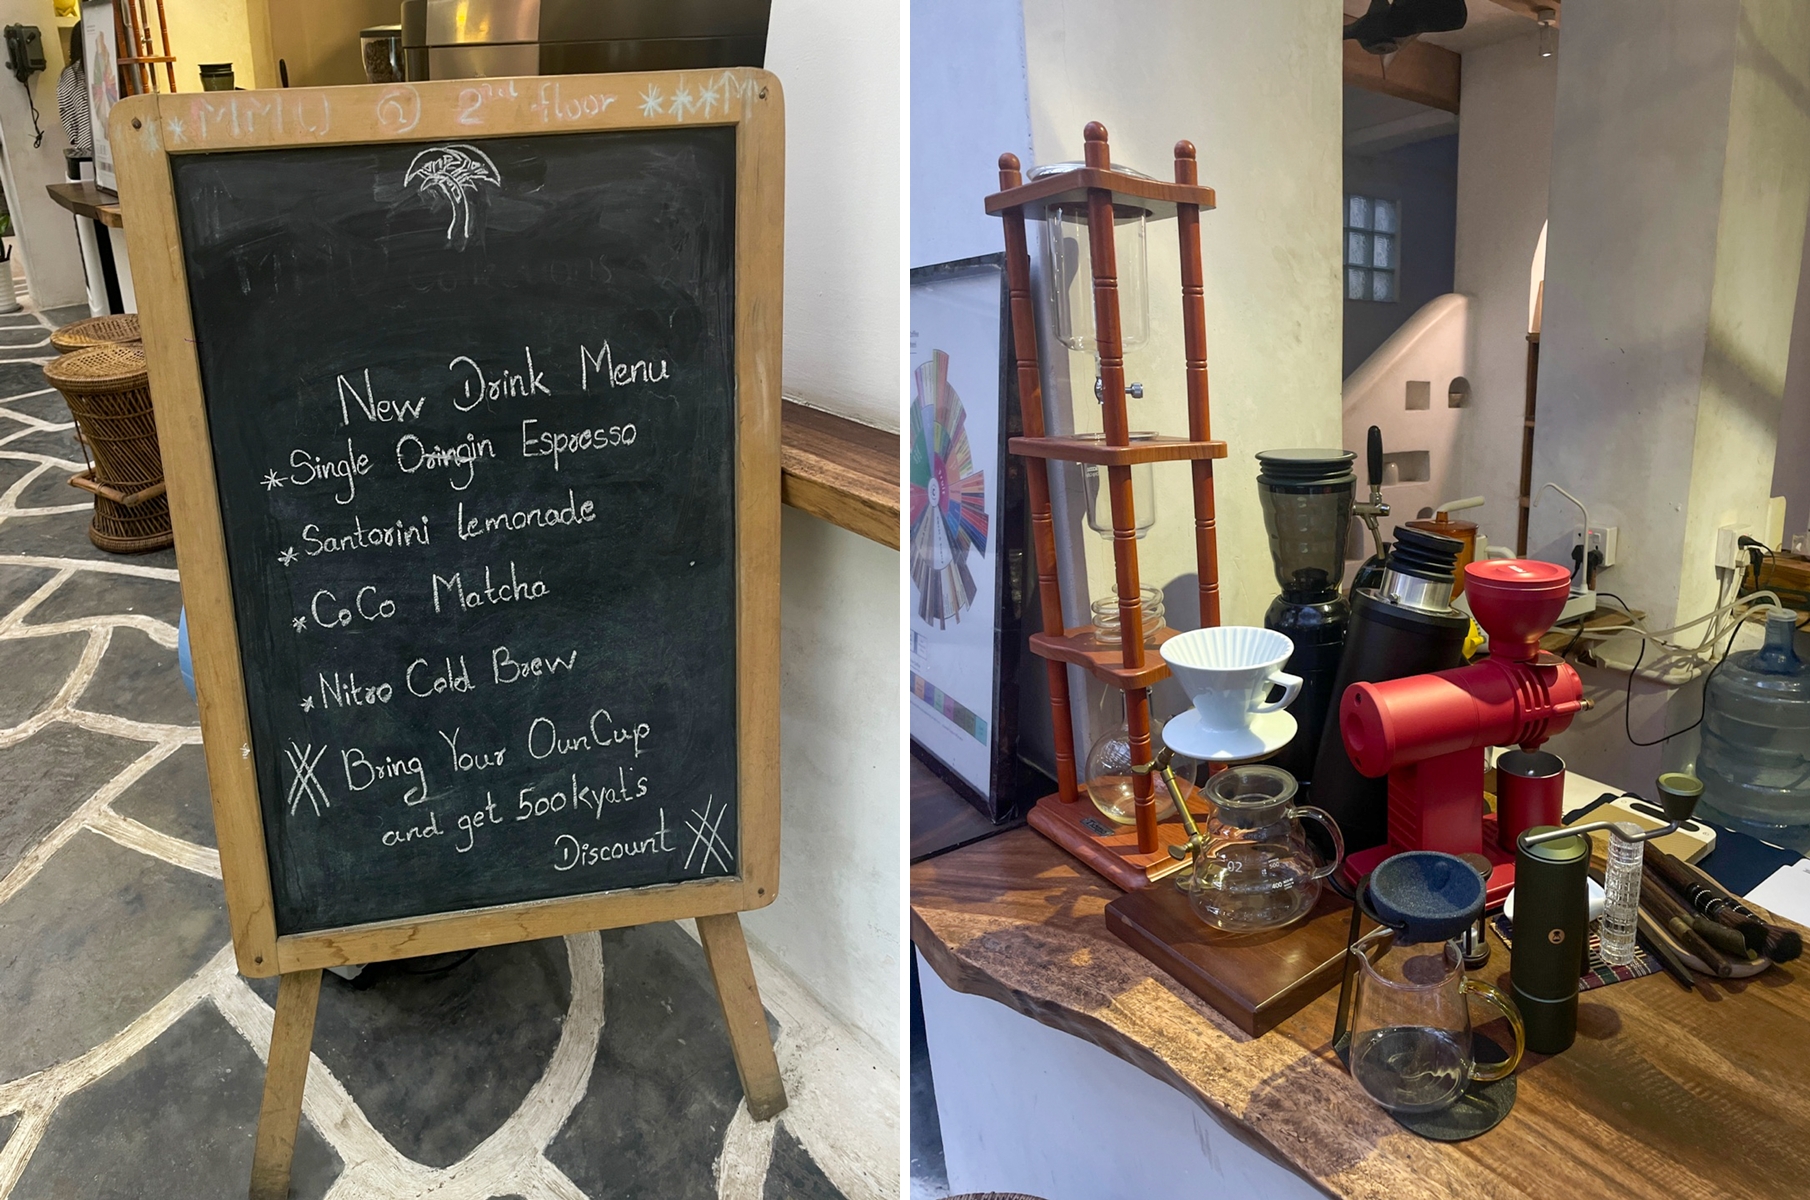 MMU @ 2nd floor
New Drink Menu
Single Oringin Espresso
Santorini Lemonade
CoCo Matcha
Nitro Cold Brew
Bring Your Oun Cup
and get 500 kyat's
Discount
02